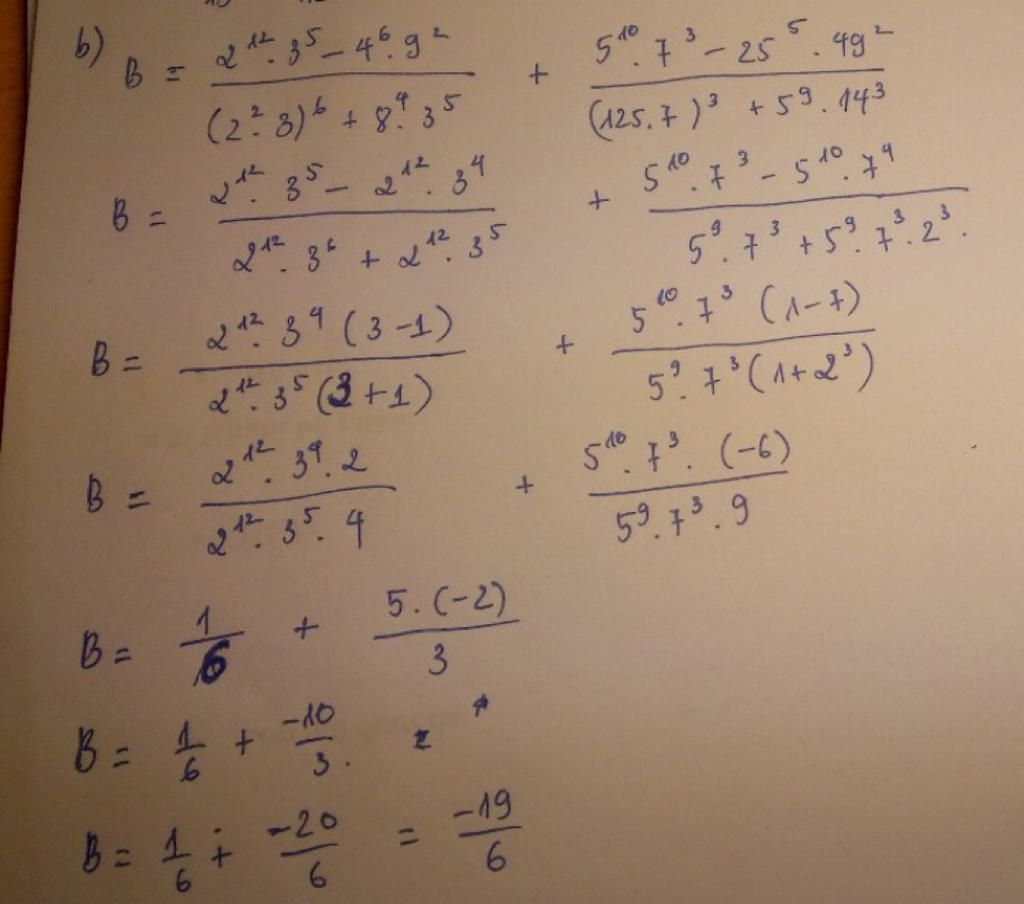 b) B = \frac{2^{12} \cdot 3^5 - 4^6 \cdot 9^2}{(2^2 \cdot 3)^6 + 8^4 \cdot 3^5} + \frac{5^{10} \cdot 7^3 - 25^5 \cdot 49^2}{(125 \cdot 7)^3 + 5^9 \cdot 14^3}
B = \frac{2^{12} \cdot 3^5 - 2^{12} \cdot 3^4}{2^{12} \cdot 3^6 + 2^{12} \cdot 3^5} + \frac{5^{10} \cdot 7^3 - 5^{10} \cdot 7^4}{5^9 \cdot 7^3 + 5^9 \cdot 7^3 \cdot 2^3}.
B = \frac{2^{12} \cdot 3^4 (3 - 1)}{2^{12} \cdot 3^5 (3 + 1)} + \frac{5^{10} \cdot 7^3 (1 - 7)}{5^9 \cdot 7^3 (1 + 2^3)}
B = \frac{2^{12} \cdot 3^4 \cdot 2}{2^{12} \cdot 3^5 \cdot 4} + \frac{5^{10} \cdot 7^3 \cdot (-6)}{5^9 \cdot 7^3 \cdot 9}
B = \frac{1}{6} + \frac{5 \cdot (-2)}{3}
B = \frac{1}{6} + \frac{-10}{3}.
B = \frac{1}{6} + \frac{-20}{6} = \frac{-19}{6}